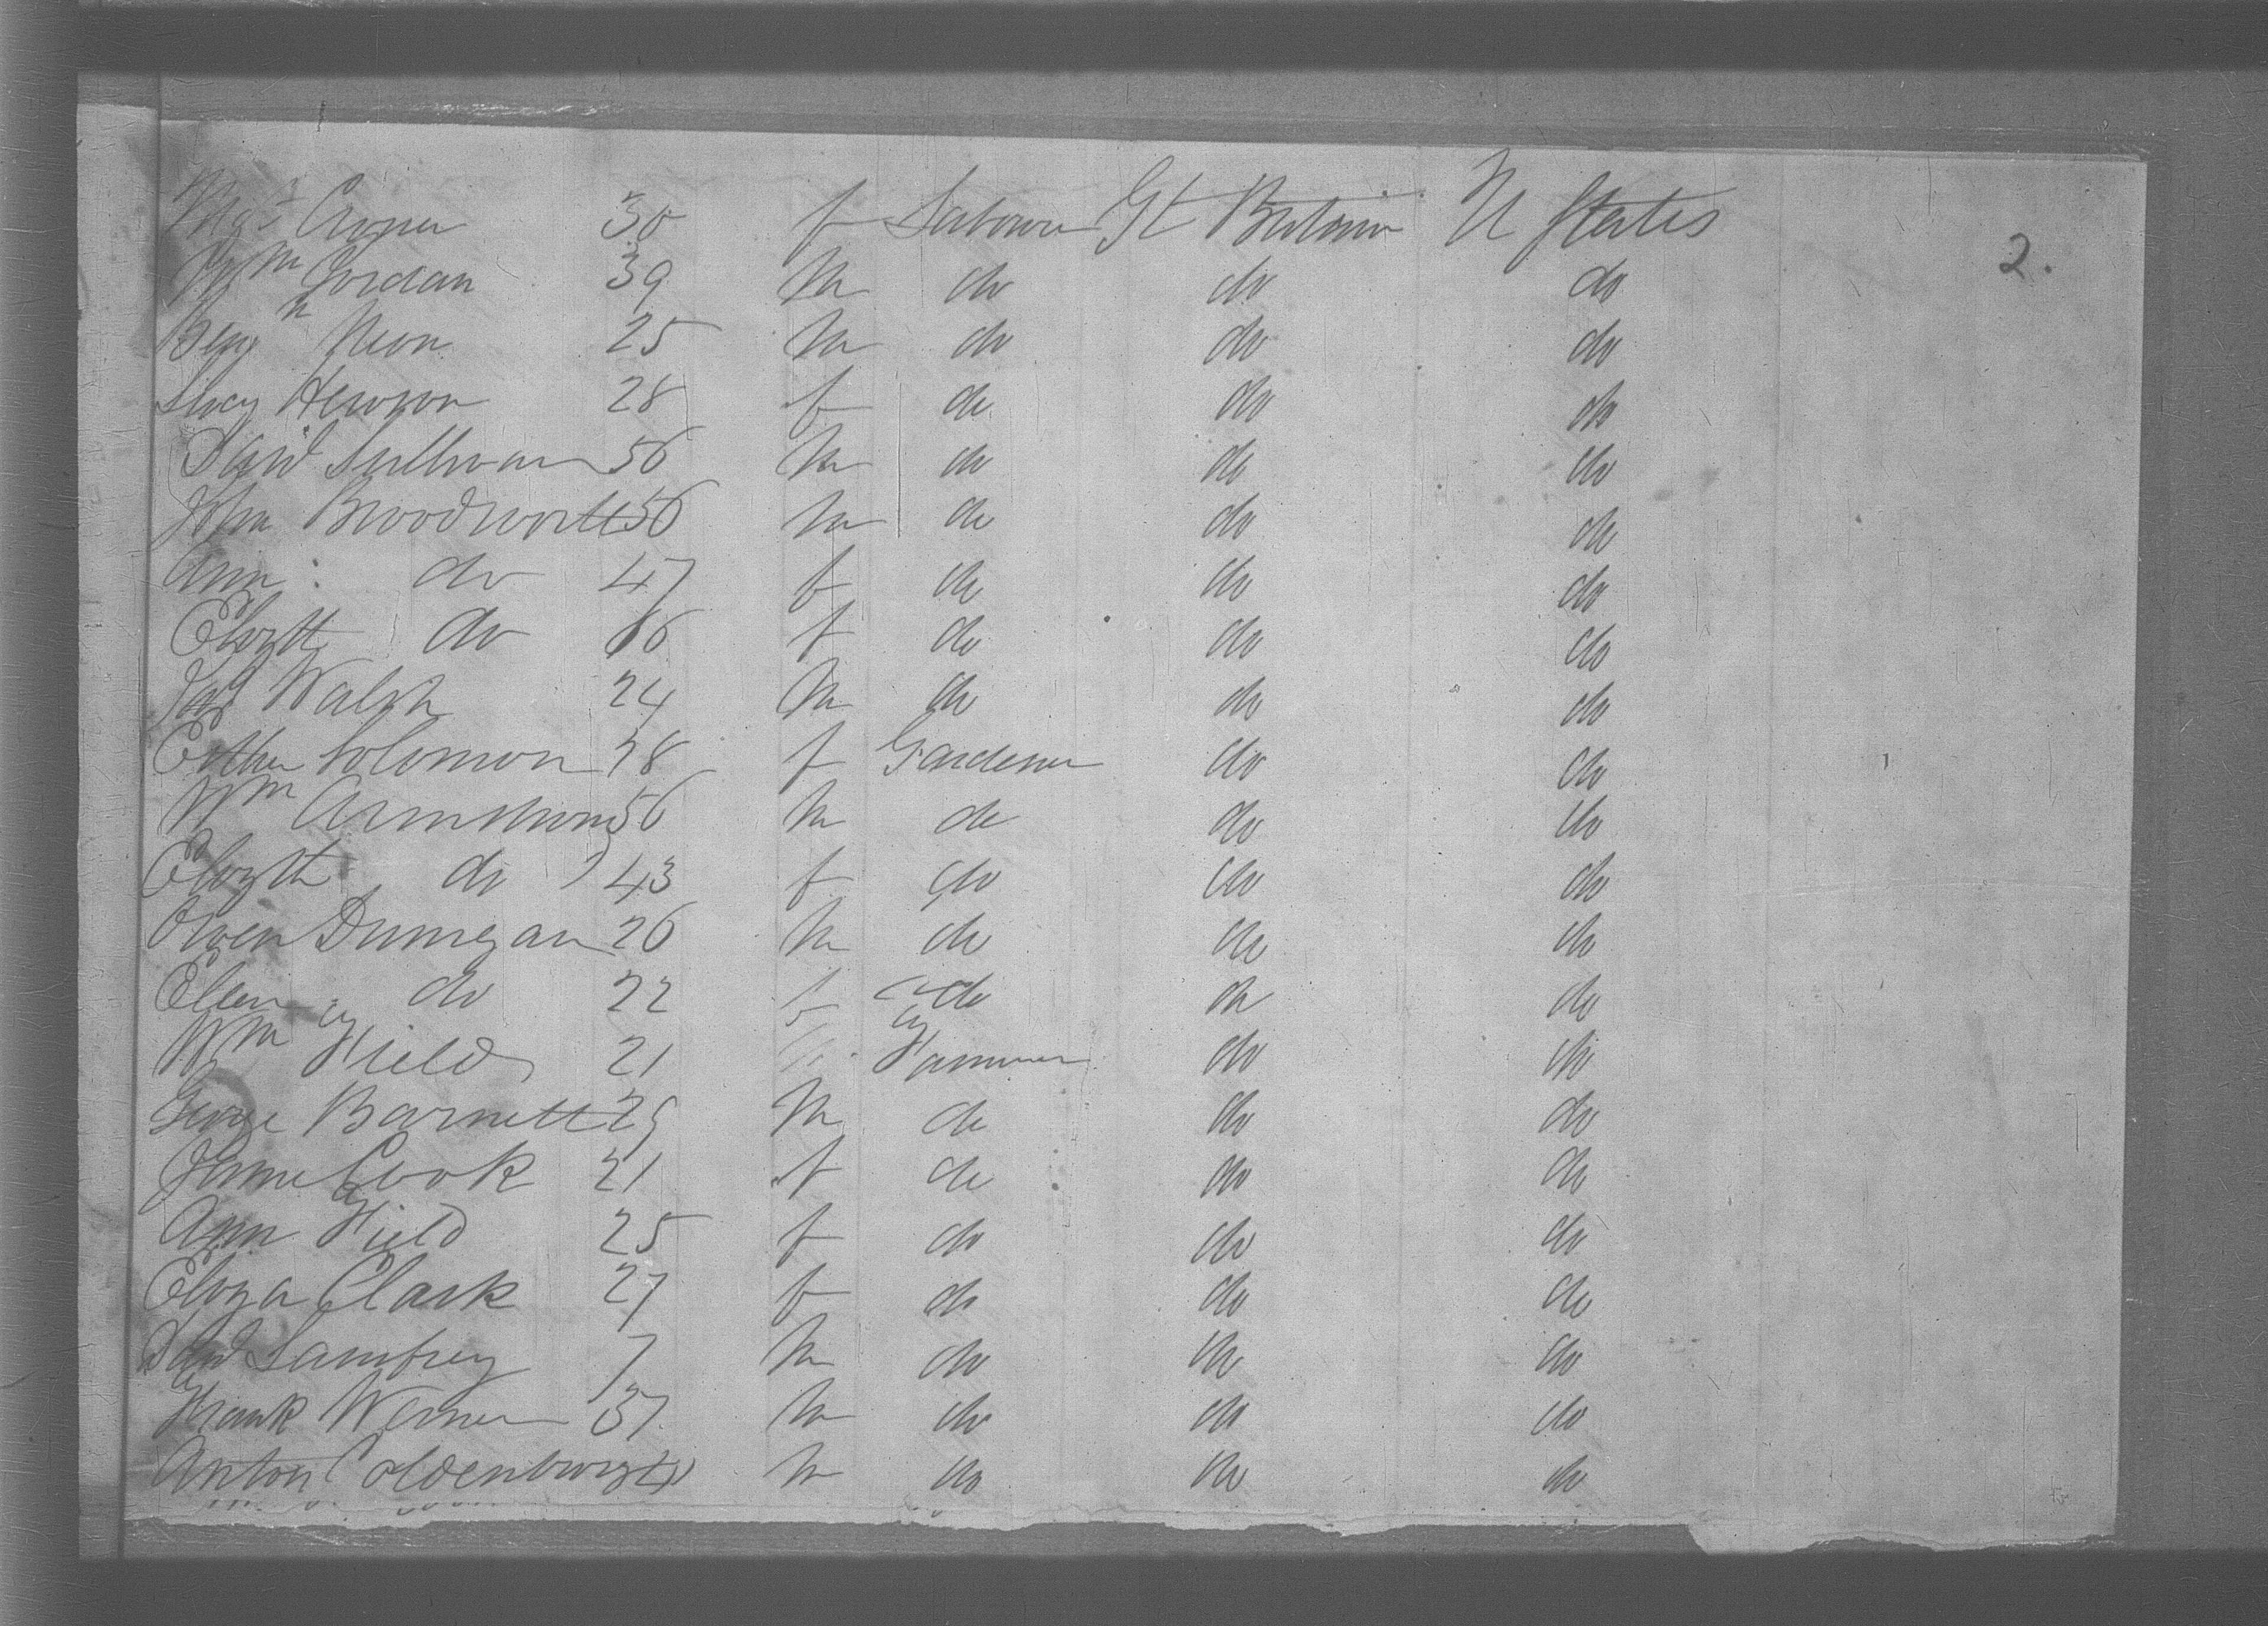 Mgt 30 f Labourer Gt Britain U States
2.
Wm Jordan 39 m do do do
Benjn 25 m do do do
28 f do do do
David Sullivan 56 m do do do
John Broodworth 56 m do do do
Ann : do 47 f do do do
Elizth do 16 f do do do
Jas Walsh 24 m do do do
Esther Solomon 28 f Gardener do do
Wm Armstrong 56 m do do do
Elizth do 43 f do do do
Owen Dunegan 26 m do do do
Ellen do 22 f do do do
Wm Field 21 Farmer do do
George Barnett 25 m do do do
Jane Cook 21 f do do do
Ann Field 25 f do do do
Eliza Clark 27 f do do do
Lamfrey 7 m do do do
Frank Werner 37 m do do do
Anton Coldenburg m do do do